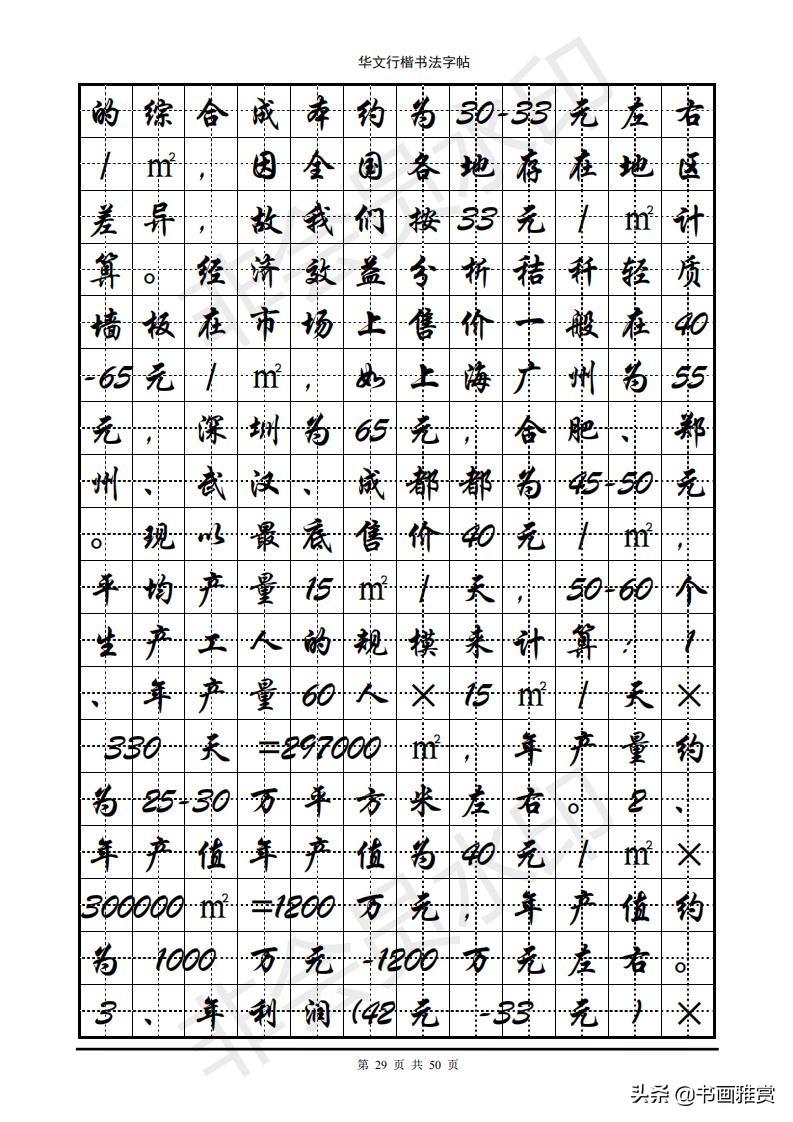 华文行楷书法字帖
的综合成本约为30-33元左右
/㎡，因全国各地存在地区
差异，故我们按33元/㎡计
算。经济效益分析秸秆轻质
墙板在市场上售价一般在40
-65元/㎡，如上海广州为55
元，深圳为65元，合肥、郑
州、武汉、成都都为45-50元
。现以最底售价40元/㎡，
平均产量15㎡/天，50-60个
生产工人的规模来计算：1
、年产量60人×15㎡/天×
330天=297000㎡，年产量约
为25-30万平方米左右。2、
年产值年产值为40元/㎡×
300000㎡=1200万元，年产值约
为1000万元-1200万元左右。
3、年利润(42元-33元)×
第 29 页 共 50 页
非会员水印
非会员水印
头条 @书画雅赏